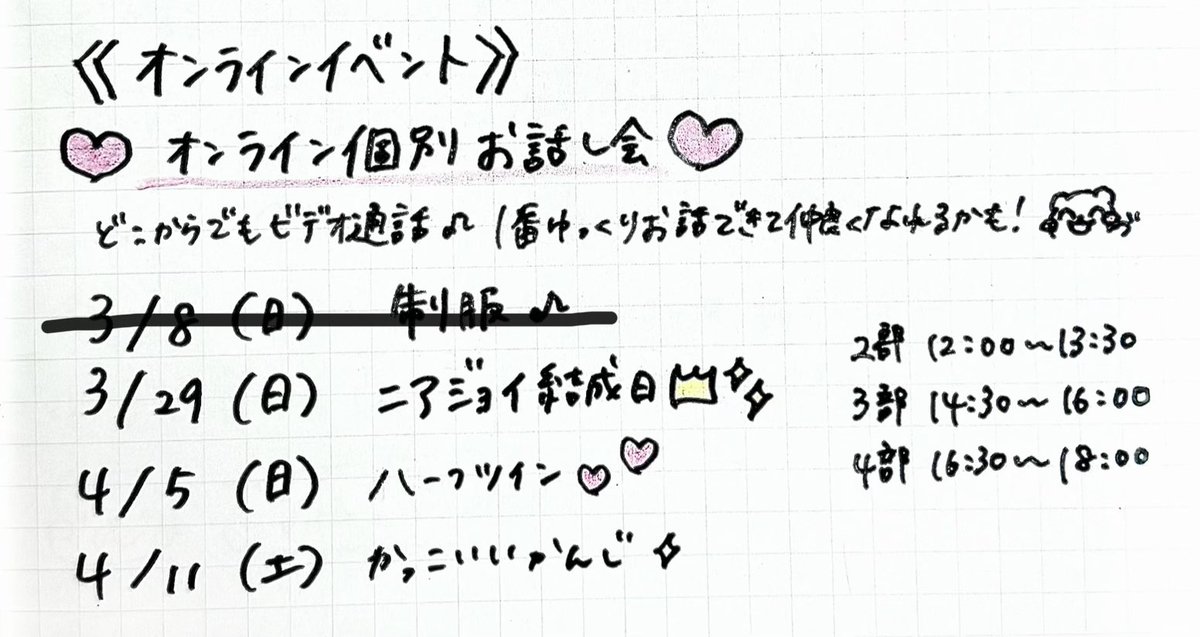 《オンラインイベント》
オンライン個別お話し会
どこからでもビデオ通話♫ 1番ゆっくりお話できて仲良くなれるかも！
3/8（日） 制服♪
3/29（日） ニアジョイ結成日
4/5（日） ハーフツイン
4/11（土） かっこいいかんじ
2部 12:00～13:30
3部 14:30～16:00
4部 16:30～18:00